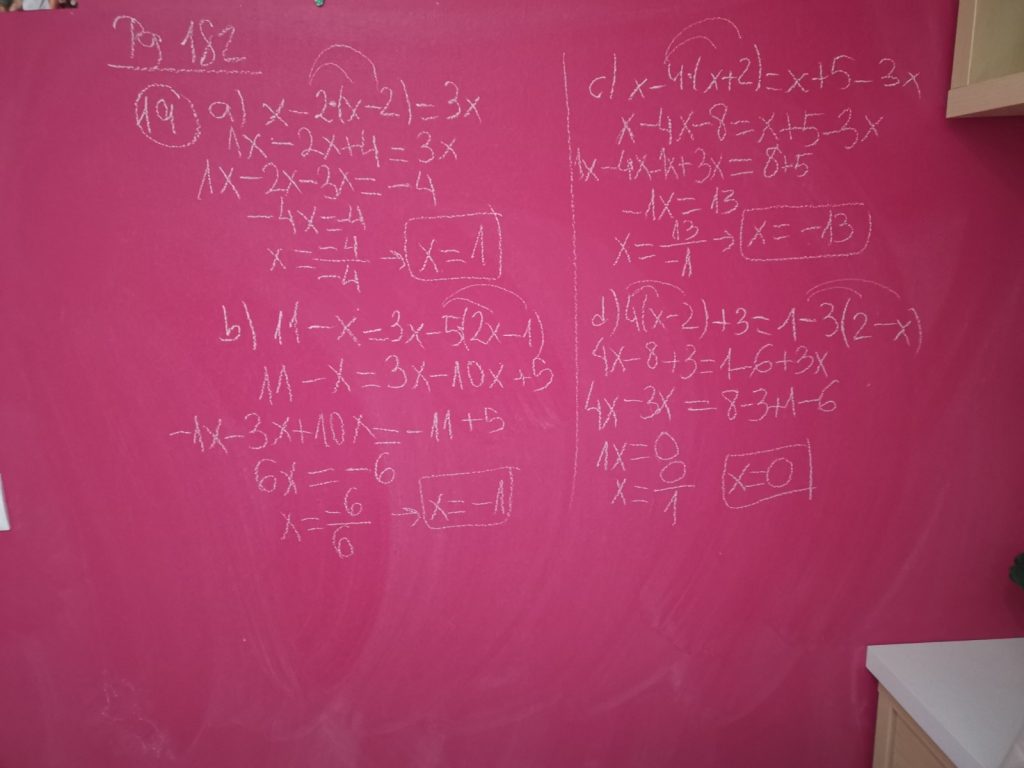 Pg 182
19 a) x-2·(x-2)=3x
1x-2x+4=3x
1x-2x-3x=-4
-4x=-4
x=-4/-4 → x=1
b) 11-x=3x-5(2x-1)
11-x=3x-10x+5
-1x-3x+10x=-11+5
6x=-6
x=-6/6 → x=-1
c) x-4·(x+2)=x+5-3x
x-4x-8=x+5-3x
1x-4x-1x+3x=8+5
-1x=13
x=13/-1 → x=-13
d) 4(x-2)+3=1-3(2-x)
4x-8+3=1-6+3x
4x-3x=8-3+1-6
1x=0
x=0/1 x=0